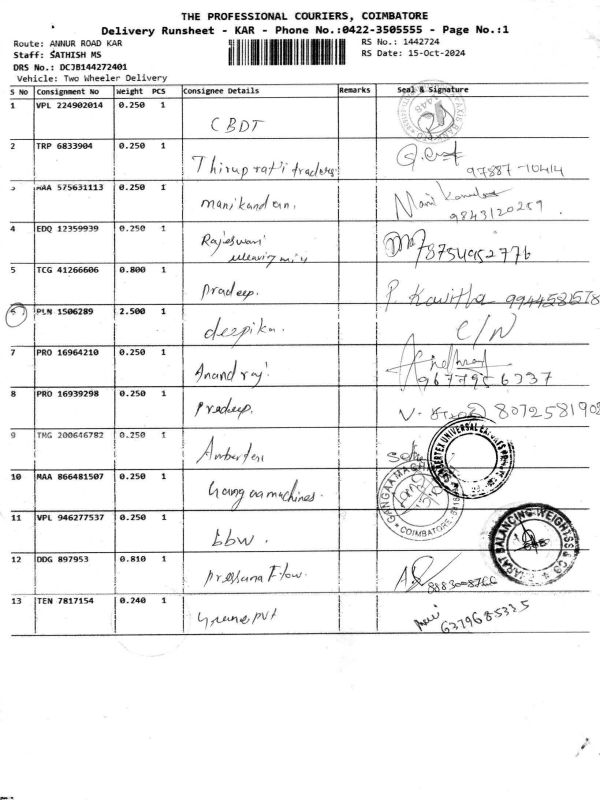 THE PROFESSIONAL COURIERS, COIMBATORE
Delivery Runsheet - KAR - Phone No.:0422-3505555 - Page No.:1
Route: ANNUR ROAD KAR
RS No.: 1442724
Staff: SATHISH MS
RS Date: 15-Oct-2024
DRS No.: DCJB144272401
Vehicle: Two Wheeler Delivery
S No Consignment No Weight PCS Consignee Details Remarks Seal & Signature
1 VPL 224902014 0.250 1
CBDT
2 TRP 6833904 0.250 1
Thiruprati traders
97887-10414
MAA 575631113 0.250 1
manikandan.
9843120259
4 EDQ 12359939 0.250 1
Rajeswari
weaving mill
8754952776
5 TCG 41266606 0.800 1
pradeep.
P. Kavitha
6 PLN 1506289 2.500 1
deepika.
C/N
7 PRO 16964210 0.250 1
Anandraj
9677956337
8 PRO 16939298 0.250 1
Predeep.
807258190
9 TMG 200646782 0.250 1
10 MAA 866481507 0.250 1
Gangaamachines.
COIMBATORE
11 VPL 946277537 0.250 1
bbw.
BHARAT BALANCING WEIGHTSS & CO
12 DDG 897953 0.810 1
Pressana Flow.
13 TEN 7817154 0.240 1
6379685335